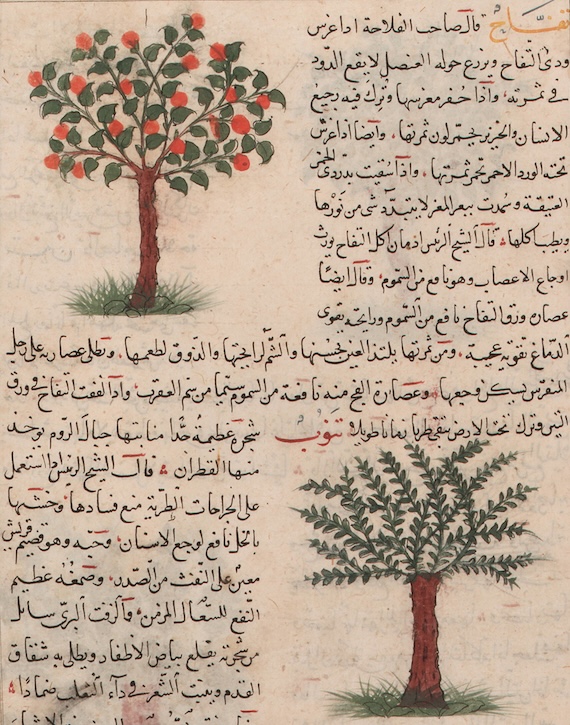 تفاح قال صاحب الفلاحة اذا غرس
ودى التفاح ويزرع حوله العنصل لا يقع الدود
فى ثمرته واذا حفر مغرسها وترك فيه رجيع
الانسان والخنزير يحمر لون ثمرتها وايضا اذا غرس
تحته الورد الاحمر تحمر ثمرتها واذا سقيت بدردى الخمر
العتيقة وسمدت ببعر المعز لا يتبدد شى من نورها
ويطيب اكلها قال الشيخ الرئيس ادمان اكل التفاح يورث
اوجاع الاعصاب وهو نافع من السموم وقال ايضا
عصارة ورق التفاح نافع من السموم ورايحته يقوى
الدماغ تقوية عجيبة ومن ثمرتها يلتذ العين بحسنها والشم لرايحتها والذوق لطعمها ويطلى عصارته على رجل
المنقرس يسكن وجعها وعصارة الفج منه نافعة من السموم سيما من سم العقرب واذا لففت التفاح فى ورق
التين وترك تحت الارض يبقى طريا زمانا طويلا تنوب
شجرة عظيمة جدا منابتها جبال الروم يوخذ
منها القطران قال الشيخ الرئيس اذا استعمل
على الجراحات الطرية منع فسادها وخشبها
بالخل نافع لوجع الاسنان وحبه وهو قضيم قريش
معين على النفث من الصدر وصمغه عظيم
النفع للسعال المزمن والزفت البرى سائل
من شجرته يقلع بياض الاظفار ويطلى به شقاق
القدم وينبت الشعر فى داء الثعلب ضمادا